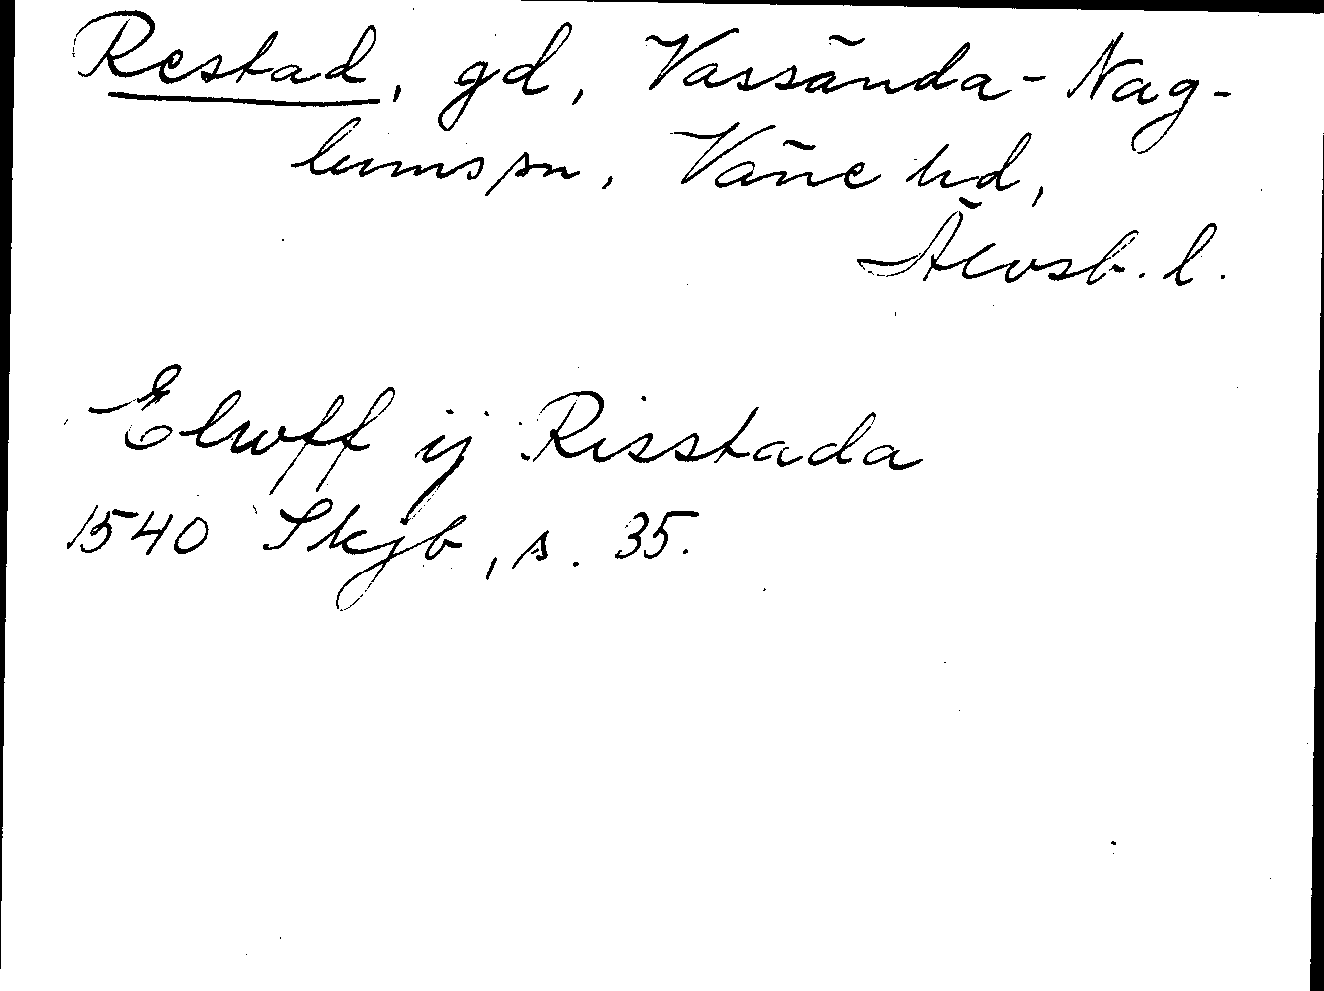 Restad, gd, Vassända-Nag-
lums sn, Väne hd,
Älvsb. l.
Elwff ij Risstada
1540 Skjb, s. 35.